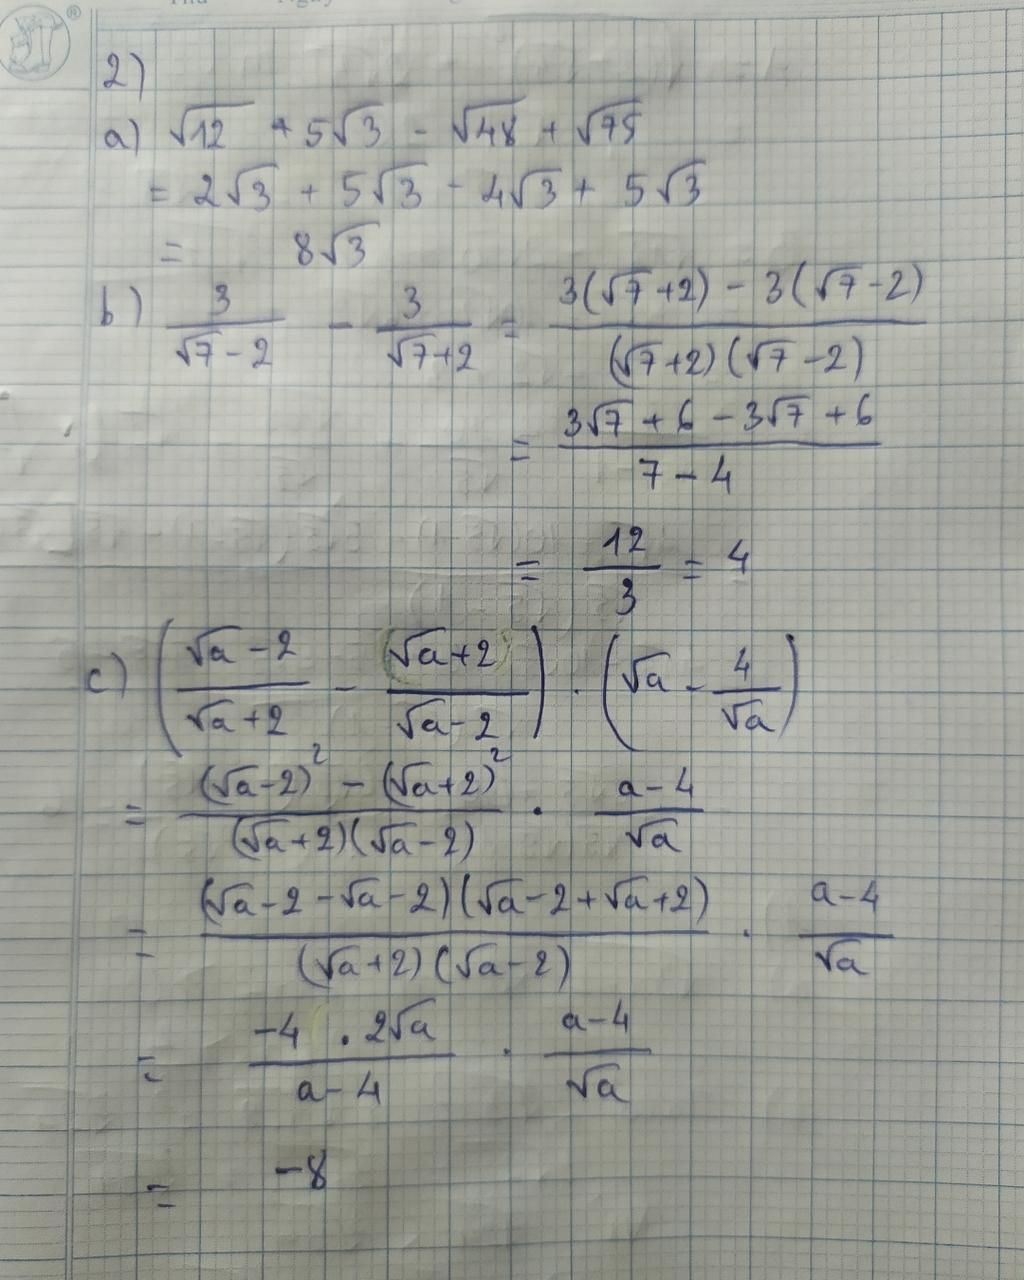 2)
a) √12 + 5√3 - √48 + √75
= 2√3 + 5√3 - 4√3 + 5√3
= 8√3
b) 3/(√7-2) - 3/(√7+2) = (3(√7+2) - 3(√7-2))/((√7+2)(√7-2))
= (3√7 + 6 - 3√7 + 6)/(7-4)
= 12/3 = 4
c) ((√a-2)/(√a+2) - (√a+2)/(√a-2)) . (√a - 4/√a)
= ((√a-2)² - (√a+2)²)/((√a+2)(√a-2)) . (a-4)/√a
= ((√a-2-√a-2)(√a-2+√a+2))/((√a+2)(√a-2)) . (a-4)/√a
= (-4 . 2√a)/(a-4) . (a-4)/√a
= -8